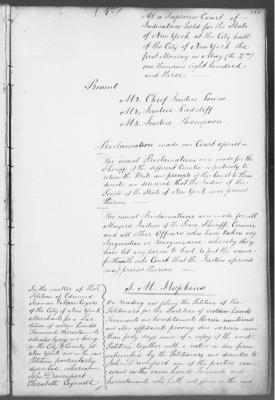 At a Supreme Court of
Judicature held for the State
of New York at the City hall
of the City of New York the
first Monday in May (the 2nd)
one thousand eight hundred
and three
Present
Mr. Chief Justice Lewis
Mr. Justice Radcliff
Mr. Justice Thompson
Proclamation made and Court opened
The usual Proclamations were made for the
Sheriffs of the different Counties respectively to
return the Writs and precepts of this Court to them
directed and delivered that the Justices of the
People of the State of New York may proceed
thereon
The usual Proclamations are made for all
Mayors Justices of the Peace, Sheriffs, Coroners
and all other Officers who have taken any
Inquisition or Recognizance whereby they
have let any person to bail to put the same
forthwith into Court that the Justices aforesaid
may proceed thereon
In the matter of the
Petition of Edmund
Seaman
of the City of New York
Merchants for a Par-
tition of certain lands
Tenements
situate lying and being
in the City & County of
New York and in the said
Petition particularly
described whereof
John Davenport
Elizabeth Cogswell
S. M. Hopkins
On reading and filing the Petition of the
Petitioners for the Partition of certain lands
Tenements and hereditaments therein mentioned
and also affidavits proving due service more
than forty days since of a copy of the said
Petition together with a notice in due form
subscribed by the Petitioners and directed to
John Davenport one of the parties con-
cerned in the same lands Tenements and
hereditaments which said